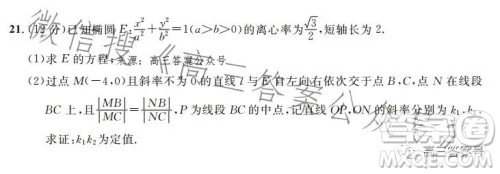 21.(12分)已知椭圆E:x²/a²+y²/b²=1(a>b>0)的离心率为√3/2,短轴长为2.
(1)求E的方程;来源:高三答案公众号
(2)过点M(-4,0)且斜率不为0的直线l与E自左向右依次交于点B,C,点N在线段
BC上,且|MB|/|MC|=|NB|/|NC|,P为线段BC的中点,记直线OP,ON的斜率分别为k₁,k₂.
求证:k₁k₂为定值.
微信搜《高三答案公众号》
高三答案号